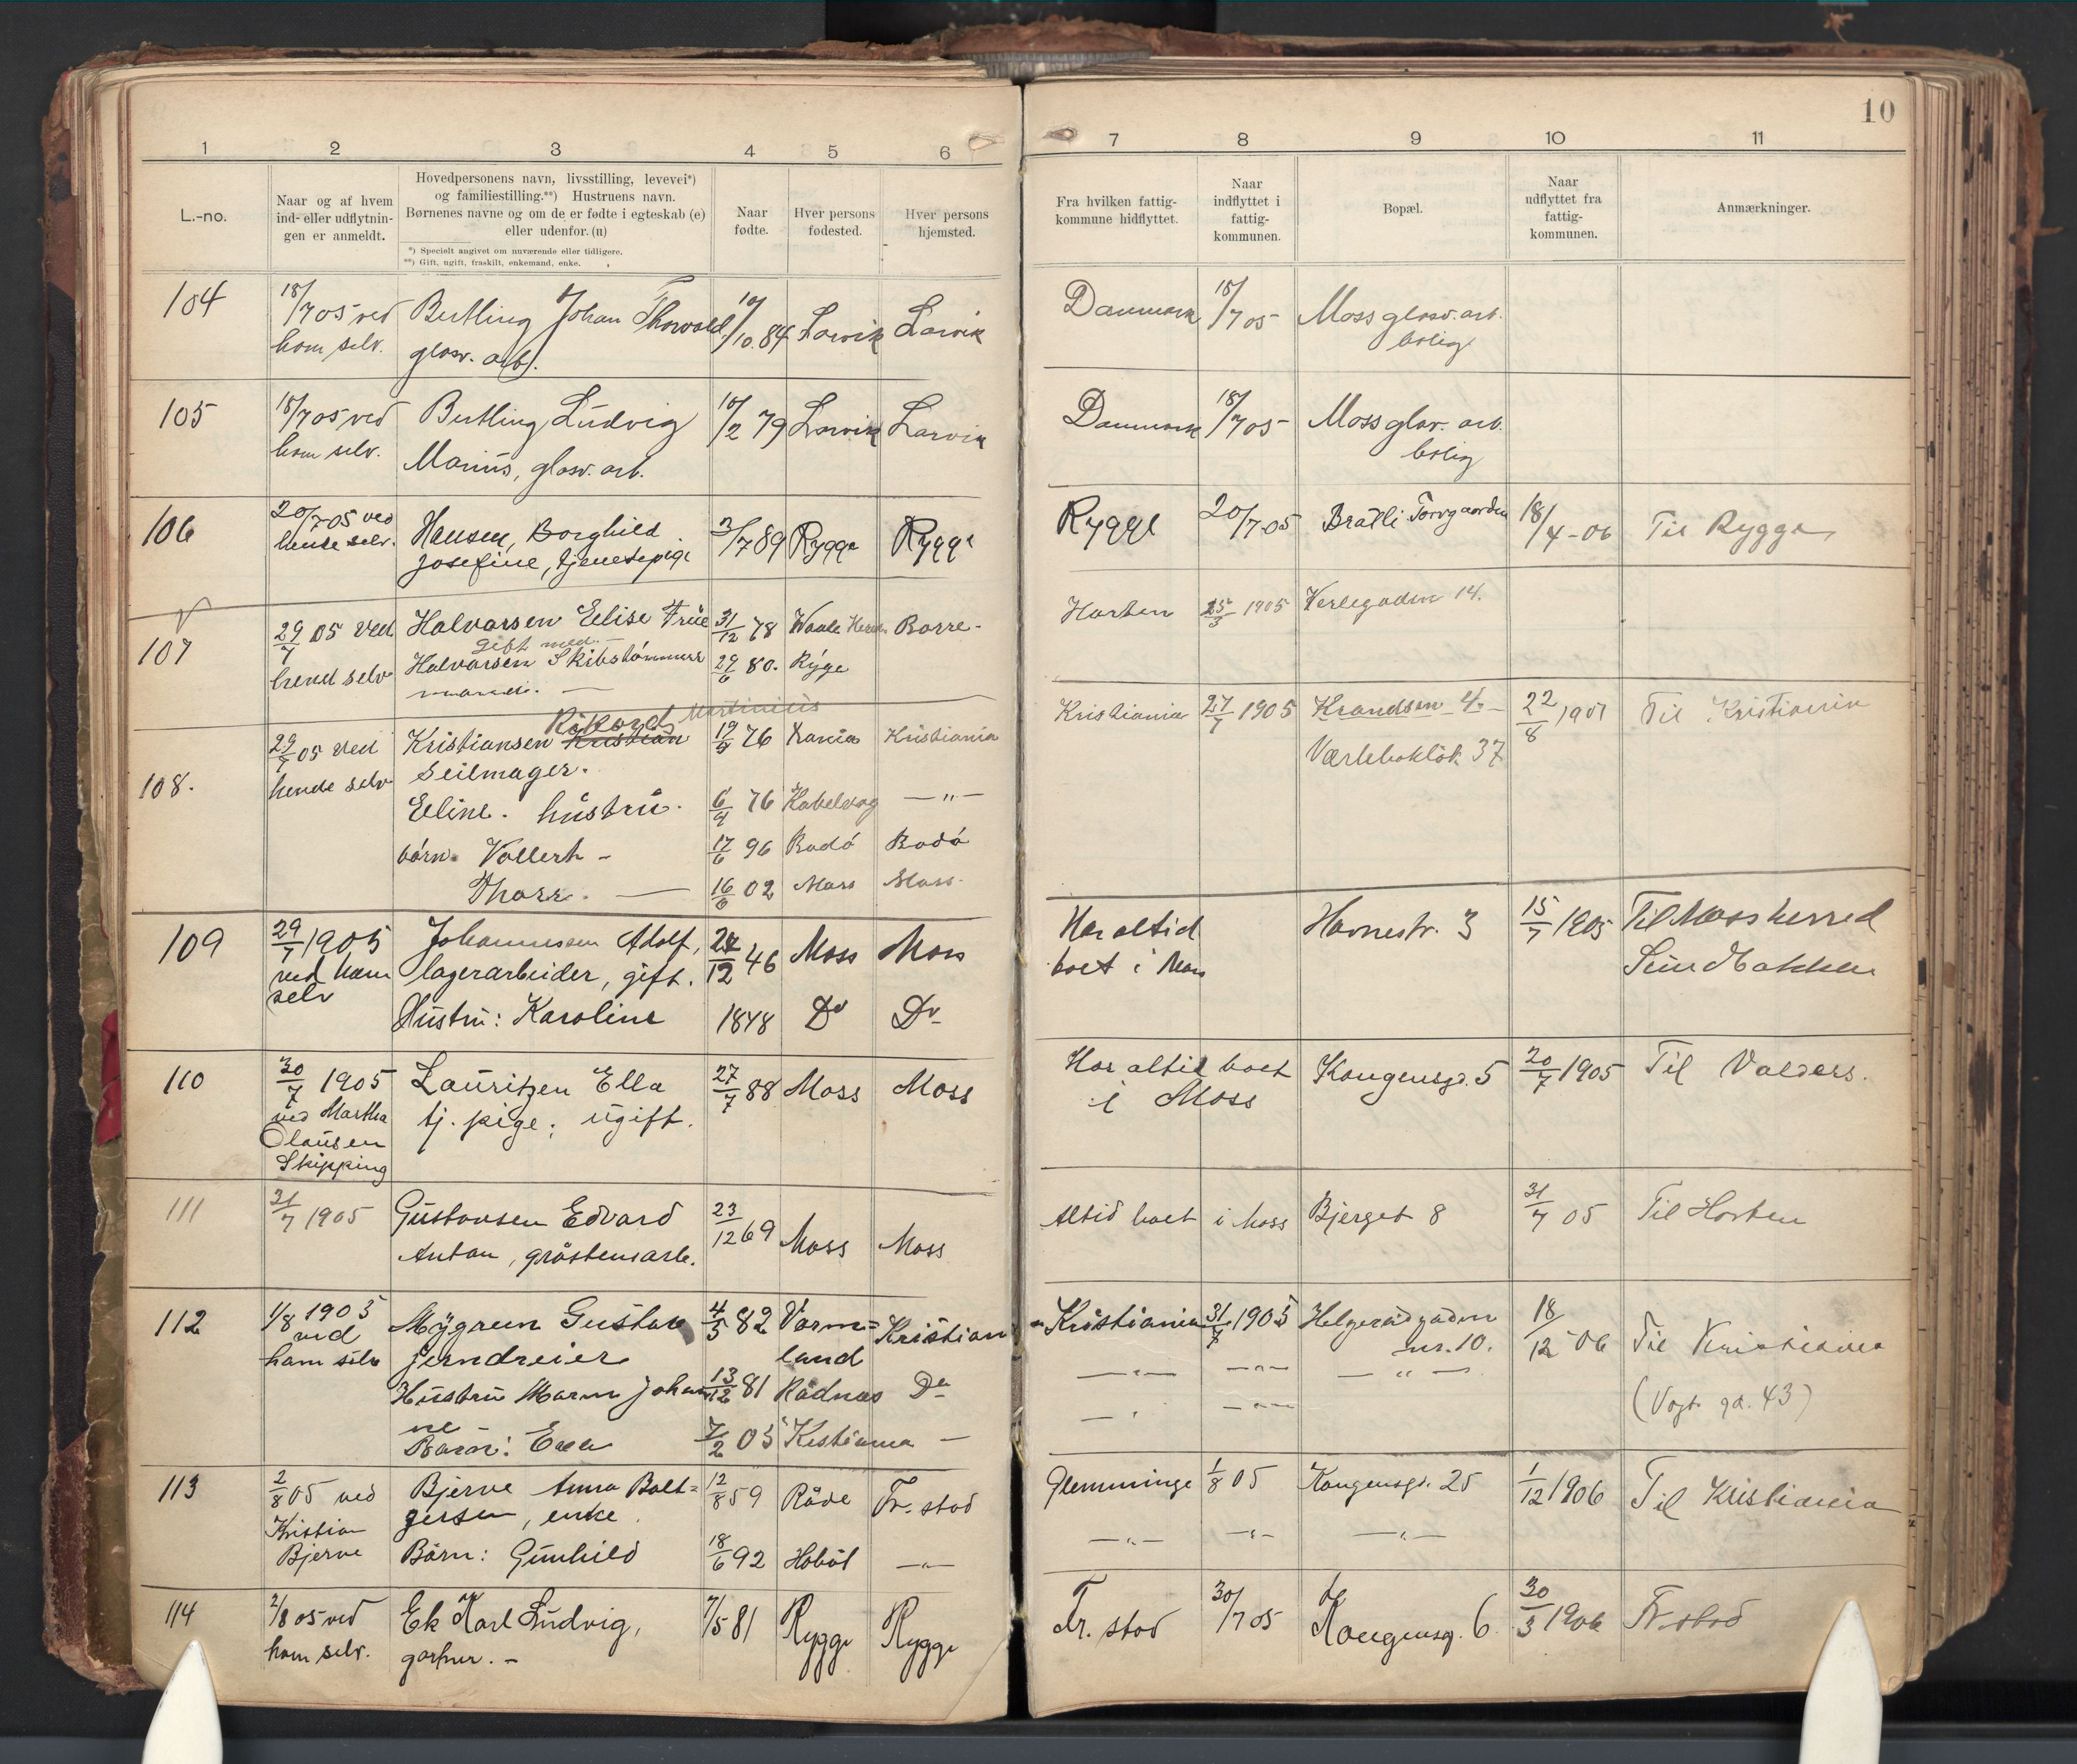 10
1 2 3 4 5 6 7 8 9 10 11
L.-no.
Naar og af hvem
ind- eller udflytnin-
gen er anmeldt.
Hovedpersonens navn, livsstilling, levevei*)
og familiestilling.**) Hustruens navn.
Børnenes navne og om de er fødte i egteskab (e)
eller udenfor. (u)
*) Specielt angivet om nuværende eller tidligere.
**) Gift, ugift, fraskilt, enkemand, enke.
Naar
fødte.
Hver persons
fødested.
Hver persons
hjemsted.
Fra hvilken fattig-
kommune hidflyttet.
Naar
indflyttet i
fattig-
kommunen.
Bopæl.
Naar
udflyttet fra
fattig-
kommunen.
Anmærkninger.
104 18/7 05 ved Bertling Johan Thorvald 10/10 84 Larvik Larvik Danmark 18/7 05 Moss glasv. arb.
ham selv. glasv. arb. bolig
105 18/7 05 ved Bertling Ludvig 10/2 79 Larvik Larvik Danmark 18/7 05 Moss glasv. arb.
ham selv. Marius, glasv. arb. bolig
106 20/7 05 ved Hansen, Borghild 3/7 89 Rygge Rygge Rygge 20/7 05 Bratli Torvgaarden 18/4-06 Til Rygge
hende selv. Josefine, tjenestepige
107 29/7 05 ved Halvorsen Elise Frue 31/12 78 Borre- Horten 25/3 1905 Verlegaden 14.
gift med
hend selv Halvorsen Skibstømmer 29/6 80. Ryge
mand. —
Rikard Martinius
108. 29/7 05 ved Kristiansen Kristian 19/9 76 Kristiania Kristiania 27/7 1905 Krandsen 4. 22/8 1907 Til Kristiania
hende selv Seilmager. Værlebaklök. 37
Eline. hustru. 6/9 76 Kabelvag —"—
børn. Vollert - 17/6 96 Bodø Bodø
Thorr. — 16/6 02 Moss Moss.
109 29/7 1905 Johannessen Adolf, 24/12 46 Moss Moss Har altid Havnestr. 3 15/7 1905 Til Moss herred
ved ham lagerarbeider, gift. boet i Moss Sundbakken
selv
Hustru: Karoline 1848 Do Do
110 30/7 1905 Lauritzen Ella 27/7 88 Moss Moss Har altid boet Kongensgd. 5 20/7 1905 Til Valders.
ved Martha tj. pige; ugift. i Moss
Olausen
Skipping
111 31/7 1905 Gustavsen Edvard 23/12 69 Moss Moss Altid boet i Moss Bjerget 8 31/7 05 Til Horten
Anton, gråstensarb.
112 1/8 1905 Mygren Gustav 4/5 82 Varm= Kristian= Kristiania 31/7 1905 Helgerødgaden 18/12 06 Til Kristiania
ved jerndreier land nr. 10.
ham selv Hustru Maren Johan 13/12 81 Rådnes Do —"— —"— —"— (Vogts gd. 43)
ne
Barn: Eva 7/2 05 Kristiania — —"— —"—
113 2/8 05 ved Bjerve Anna Bolt= 12/8 59 Råde Fr. stad Glemminge 1/8 05 Kongensgd. 25 1/12 1906 Til Kristiania
Kristian gersen, enke.
Bjerve Börn: Gunhild 18/6 92 Hobøl —"— —"— —"— —"—
114 2/8 05 ved Ek Karl Ludvig, 7/5 81 Rygge Rygge Fr. stad 30/7 05 Kongensg. 6 30/3 1906 Fr. stad
ham selv. gartner. -